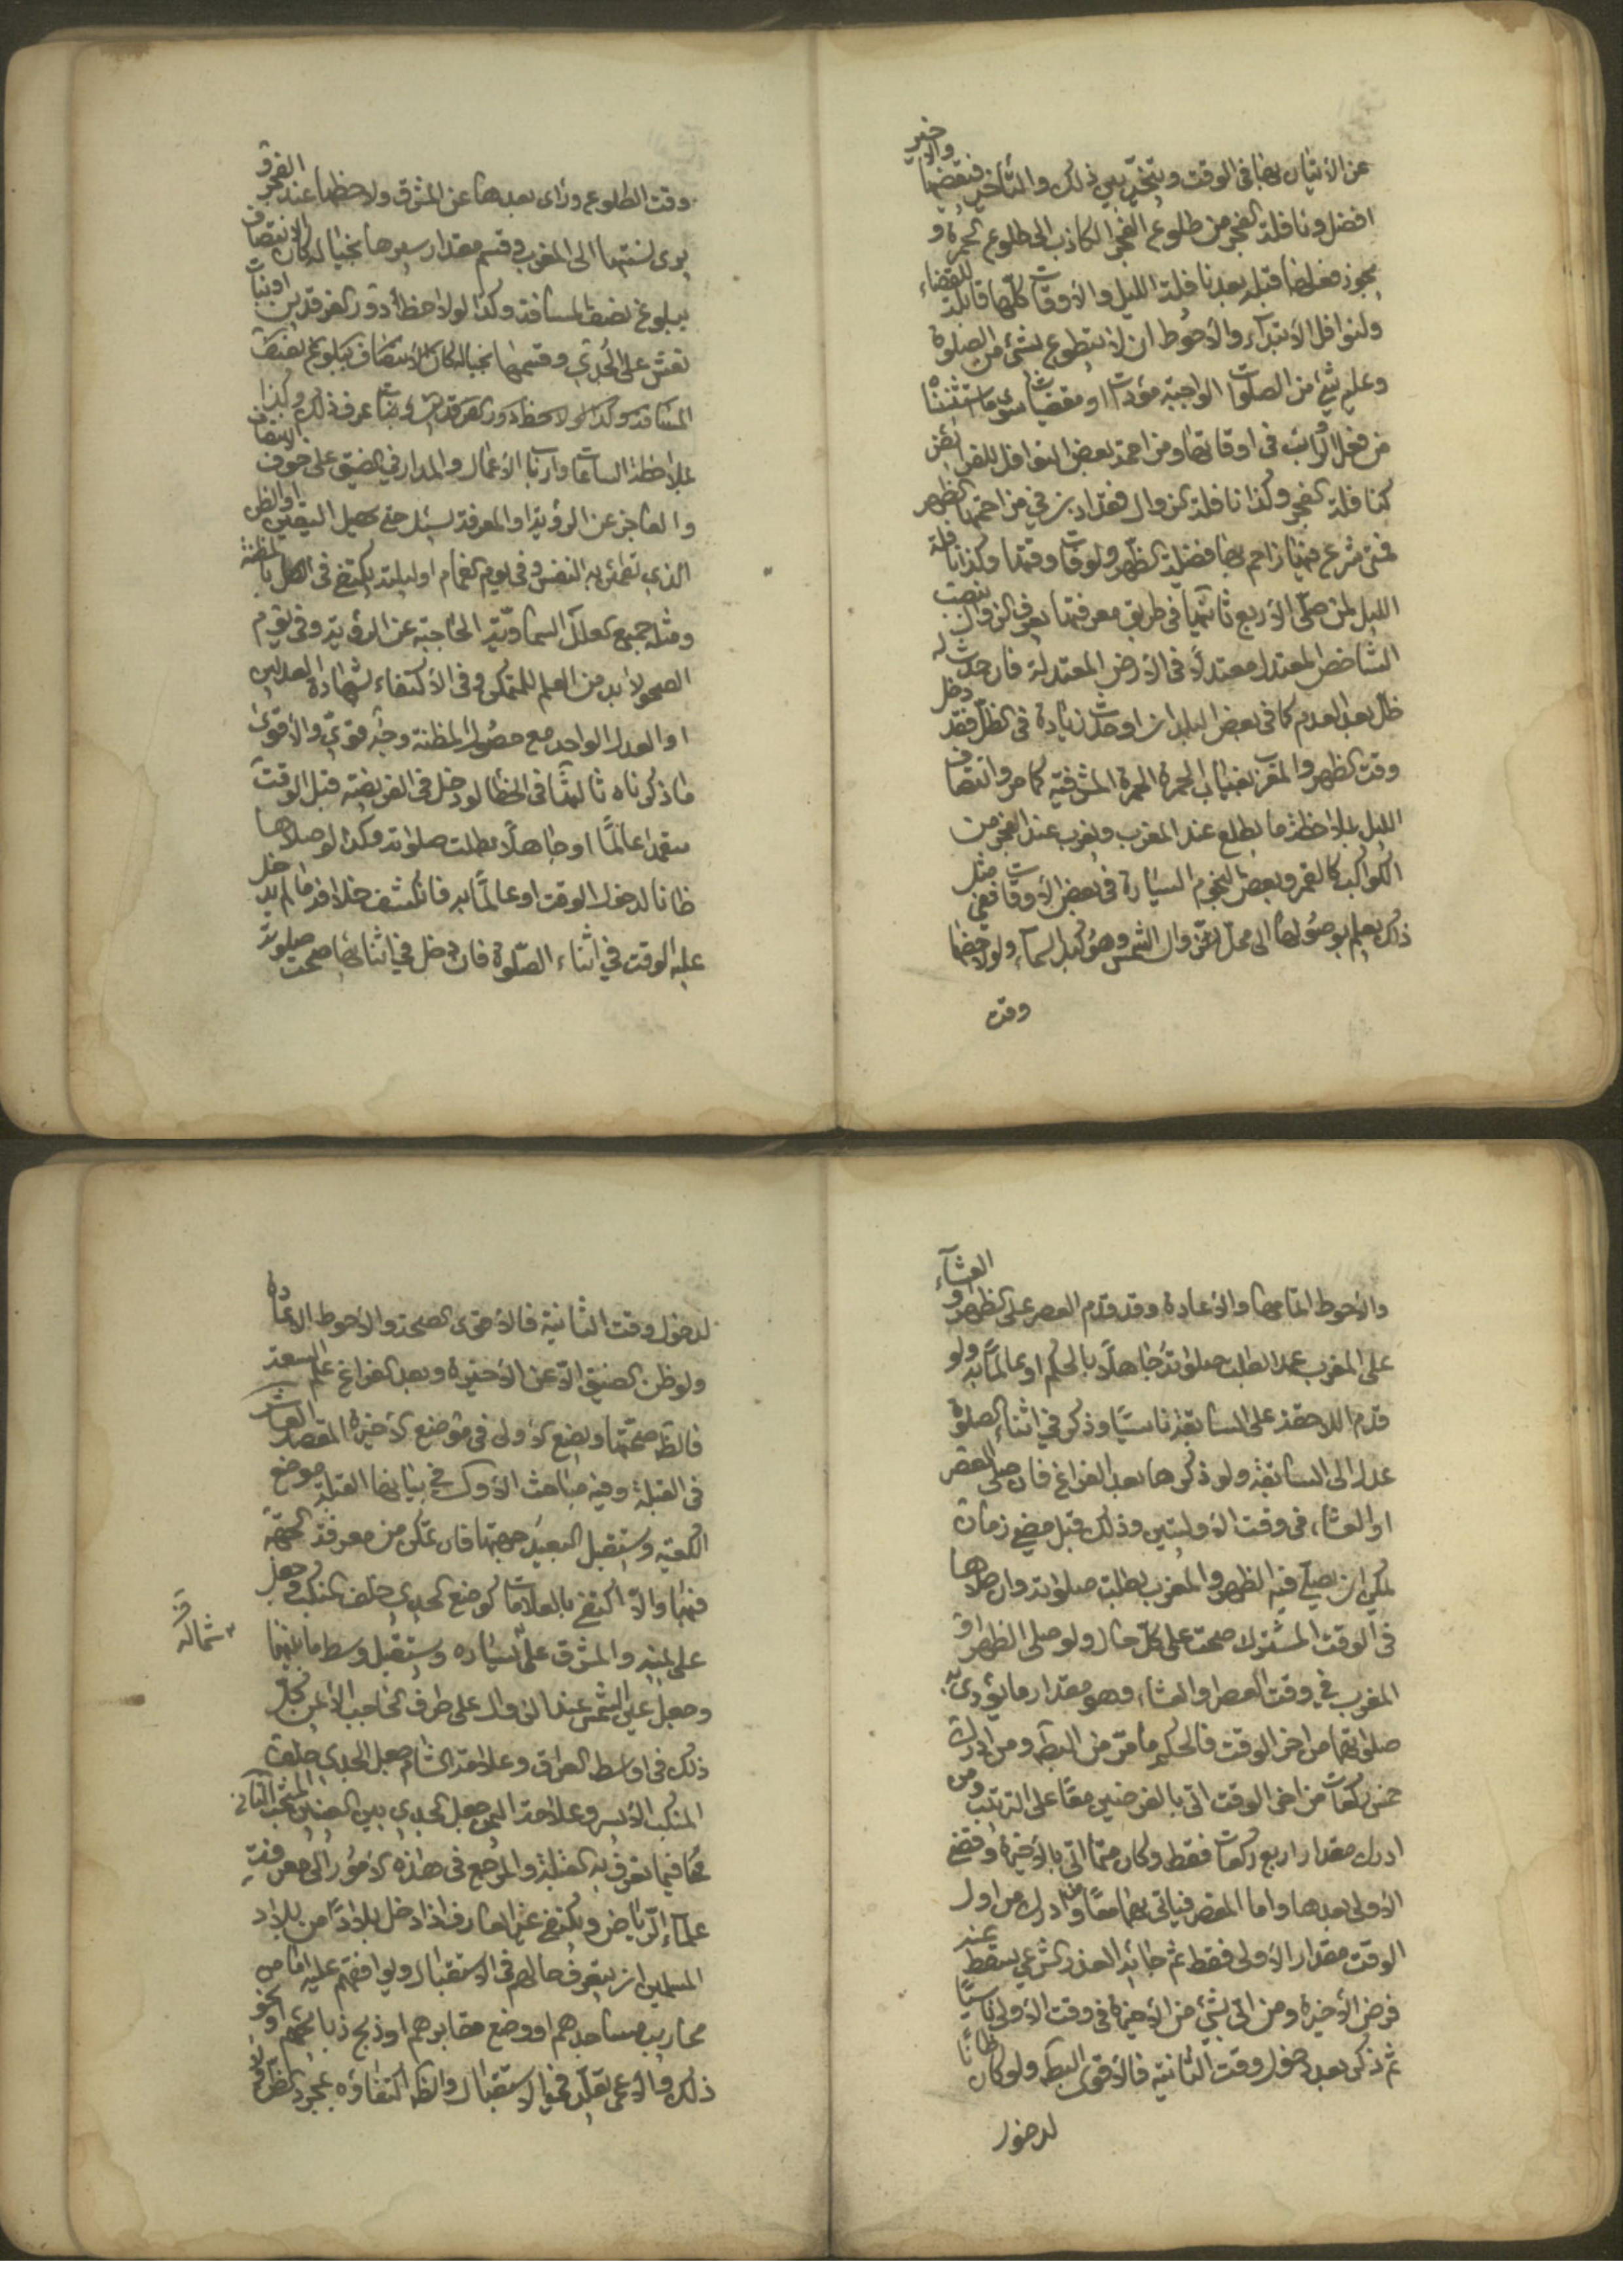 عن الأتيان بها في الوقت ويتخير بين ذلك والتأخير فيقضيها والأخير
افضل ونافلة الفجر من طلوع الفجر الكاذب الى طلوع الحمرة و
يجوز فعلها قبله بعد نافلة الليل والأوقات كلها قابلة للقضاء
ولنوافل الأبتداء والأحوط ان لا يتطوع بشئ من الصلوة
وعليه شئ من الصلوات الواجبة مؤديات او مقضيات سوى ما استثنناه
من فعل الرواتب في اوقاتها ومزاحمة بعض النوافل للفرائض
كنافلة الفجر وكذا نافلة الزوال فقد اذن في مزاحمتها الظهر
فمتى شرع فيها زاحم بها فضيلة الظهر ولو فات وقتها وكذا نافلة
الليل لمن صلى الأربع ثانيها في طريق معرفتها يعرف الزوال بنصب
الشاخص المعتدل معتدلا في الأرض المعتدلة فان حدث له
ظل بعد العدم كما في بعض البلدان او حدث زيادة في الظل فقد دخل
وقت الظهر والمغرب بغياب الحمرة المشرقية كما مر وانتصاف
الليل بملاحظة ما يطلع عند المغرب ويغرب عند الفجر من
الكواكب كالقمر وبعض النجوم السيارة في بعض الأوقات ففي مثل
ذلك يعلم بوصولها الى محل زوال الشمس وهو كبد السماء ولو لاحظها
وقت
وقت الطلوع وراى بعدها عن المشرق ولاحظها عند الفجر و
يرى نسبتها الى المغرب وقسم مقدار سيرها بخياله كان الانتصاف
ببلوغ نصف المسافة وكذا لو لاحظ دور الفرقدين او بنات
نعش على الجدي وقسمها بخياله كان الأنتصاف ببلوغ نصف
المسافة وكذا لو لاحظ دور الفرقدين وبنات عرف ذلك وكذا الانتصاف
بملاحظة الساعات وارباب الأعمال والمدار في الضيق على خوف
والعاجز عن الرؤية او المعرفة يسئل حتى يحصل اليقين او الظن
الذي تطمئن به النفس وفي يوم الغمام او ليلته يكتفى في الكل بالمظنة
ومثله جميع العلل السماوية الحاجبة عن الرؤية وفي يوم
الصحو لا بد من العلم للمتمكن وفي الأكتفاء بشهادة العدلين
او العدل الواحد مع حصول المظنة وجه قوي والأقوى
ما ذكرناه ثالثها في الخطأ لو دخل في الفريضة قبل الوقت
متعمدا عالما او جاهلا بطلت صلوته وكذا لو صلاها
ظانا لدخول الوقت او عالما به فانكشف خلافه ما لم يدخل
عليه الوقت في اثناء الصلوة فان دخل في اثنائها صحت صلوته
والأحوط اتمامها والأعادة وقد قدم العصر على الظهر او العشاء
على المغرب عمدا بطلت صلوته جاهلا بالحكم او عالما به ولو
قدم اللاحقة على السابقة ناسيا وذكر في اثناء الصلوة
عدل الى السابقة ولو ذكرها بعد الفراغ فان صلى العصر
او العشاء في وقت الأوليتين وذلك قبل مضي زمان
يمكن ان يصلي فيه الظهر والمغرب بطلت صلوته وان صلاها
في الوقت المشترك صحت على كل حال ولو صلى الظهر او
المغرب في وقت العصر او العشاء وهو مقدار ما يؤدى به
صلوتهما من اخر الوقت فالحكم ما مر من البطلان ومن ادرك
خمس ركعات من اخر الوقت اتى بالفرضين معا على الترتيب ومن
ادرك مقدار اربع ركعات فقط وكان متما اتى بالأخيرة وقضى
الأولى بعدها واما المقصر فياتي بهما معا ومن ادرك من اول
الوقت مقدار الأولى فقط ثم جائه العذر الشرعي يسقط عنه
فرض الأخيرة ومن اتى بشئ من الأخيرة في وقت الأولى ناسيا
ثم ذكر بعد دخول وقت الثانية فالأقوى البطلان ولو كان ظانا
لدخول
لدخول وقت الثانية فالأقوى الصحة والأحوط الأعادة
ولو ظن الضيق الا عن الأخيرة وبعد الفراغ علم السعة
فالظاهر صحتها ويضع الأولى في موضع الأخيرة المقصد العاشر
في القبلة وفيه مباحث الأول في بيانها القبلة موضع
الكعبة ويستقبل البعيد جهتها فان تمكن من معرفة الجهة
فبها والا اكتفى بالعلامات كوضع الجدي خلف المنكب وجعل
على يمينه والمشرق على يساره ويستقبل وسط ما بينهما
شماله
وجعل عين الشمس عند الزوال على طرف الحاجب الأيمن كل
ذلك في اواسط العراق وعلامة الشام جعل الجدي خلف
المنكب الأيسر وعلامة اليمن جعل الجدي بين العينين المبحث الثاني
فيما تعرف به القبلة والمرجع في هذه الأمور الى معرفة
علماء الرياض ويكتفي غير العارف اذا دخل بلادا من بلاد
المسلمين ان يتعرف حالهم في الاستقبال ويوافقهم عليه اما من
محاريب مساجدهم او وضع مقابرهم او ذبح ذبائحهم او نحو
ذلك والأعمى يقلد في الاستقبال والظاهر اكتفاؤه بمجرد الظن